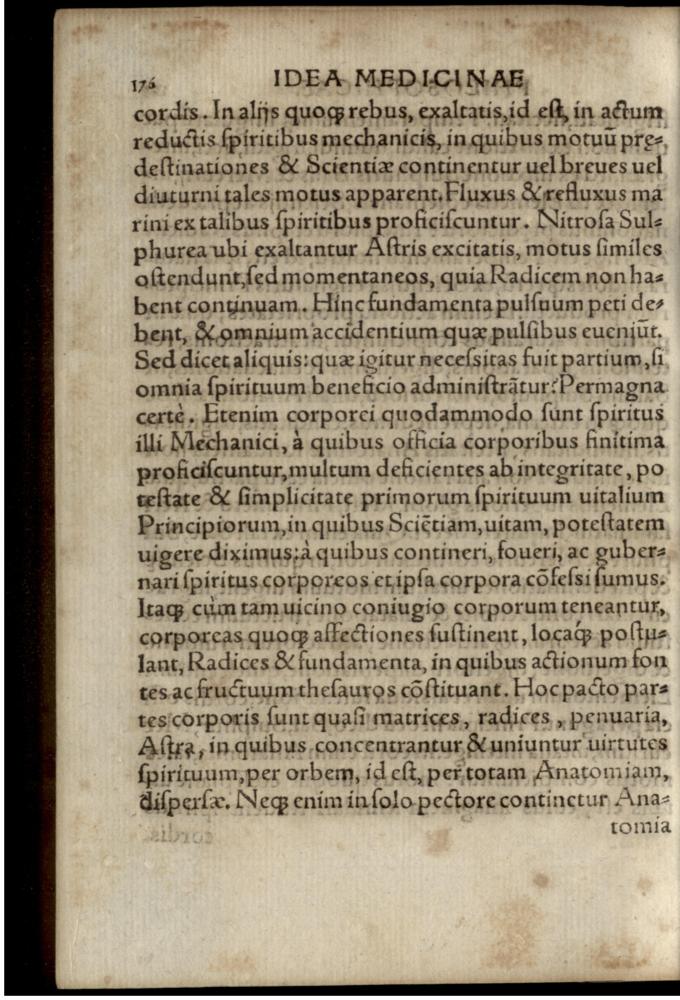 176 IDEA MEDICINAE
cordis. In alijs quoqꝫ rebus, exaltatis, id eſt, in actum
reductis ſpiritibus mechanicis, in quibus motuū prę-
deſtinationes & Scientiæ continentur uel breues uel
diuturni tales motus apparent. Fluxus & refluxus ma
rini ex talibus ſpiritibus proficiſcuntur. Nitroſa Sul-
phurea ubi exaltantur Aſtris excitatis, motus ſimiles
oſtendunt, ſed momentaneos, quia Radicem non ha-
bent continuam. Hinc fundamenta pulſuum peti de-
bent, & omnium accidentium quæ pulſibus eueniūt.
Sed dicet aliquis: quæ igitur neceſsitas fuit partium, ſi
omnia ſpirituum beneficio adminiſtrātur? Permagna
certè. Etenim corporei quodammodo ſunt ſpiritus
illi Mechanici, à quibus officia corporibus finitima
proficiſcuntur, multum deficientes ab integritate, po
teſtate & ſimplicitate primorum ſpirituum uitalium
Principiorum, in quibus Sciētiam, uitam, poteſtatem
uigere diximus: à quibus contineri, foueri, ac guber-
nari ſpiritus corporeos et ipſa corpora cōfeſsi ſumus.
Itaqꝫ cùm tam uicino coniugio corporum teneantur,
corporeas quoqꝫ affectiones ſuſtinent, locaqꝫ́ poſtu-
lant, Radices & fundamenta, in quibus actionum fon
tes ac fructuum theſauros cōſtituant. Hoc pacto par-
tes corporis ſunt quaſi matrices, radices, penuaria,
Aſtra, in quibus concentrantur & uniuntur uirtutes
ſpirituum, per orbem, id eſt, per totam Anatomiam,
diſperſæ. Neqꝫ enim in ſolo pectore continetur Ana-
tomia